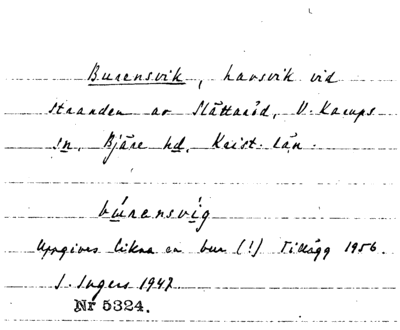 Burensvik, havsvik vid
stranden av Slättaröd, V. Karups
sn, Bjäre hd, Krist. län.
búrensvìg
Uppgives likna en bur (!) Tillägg 1956.
I. Ingers 1942
Nr 5324.